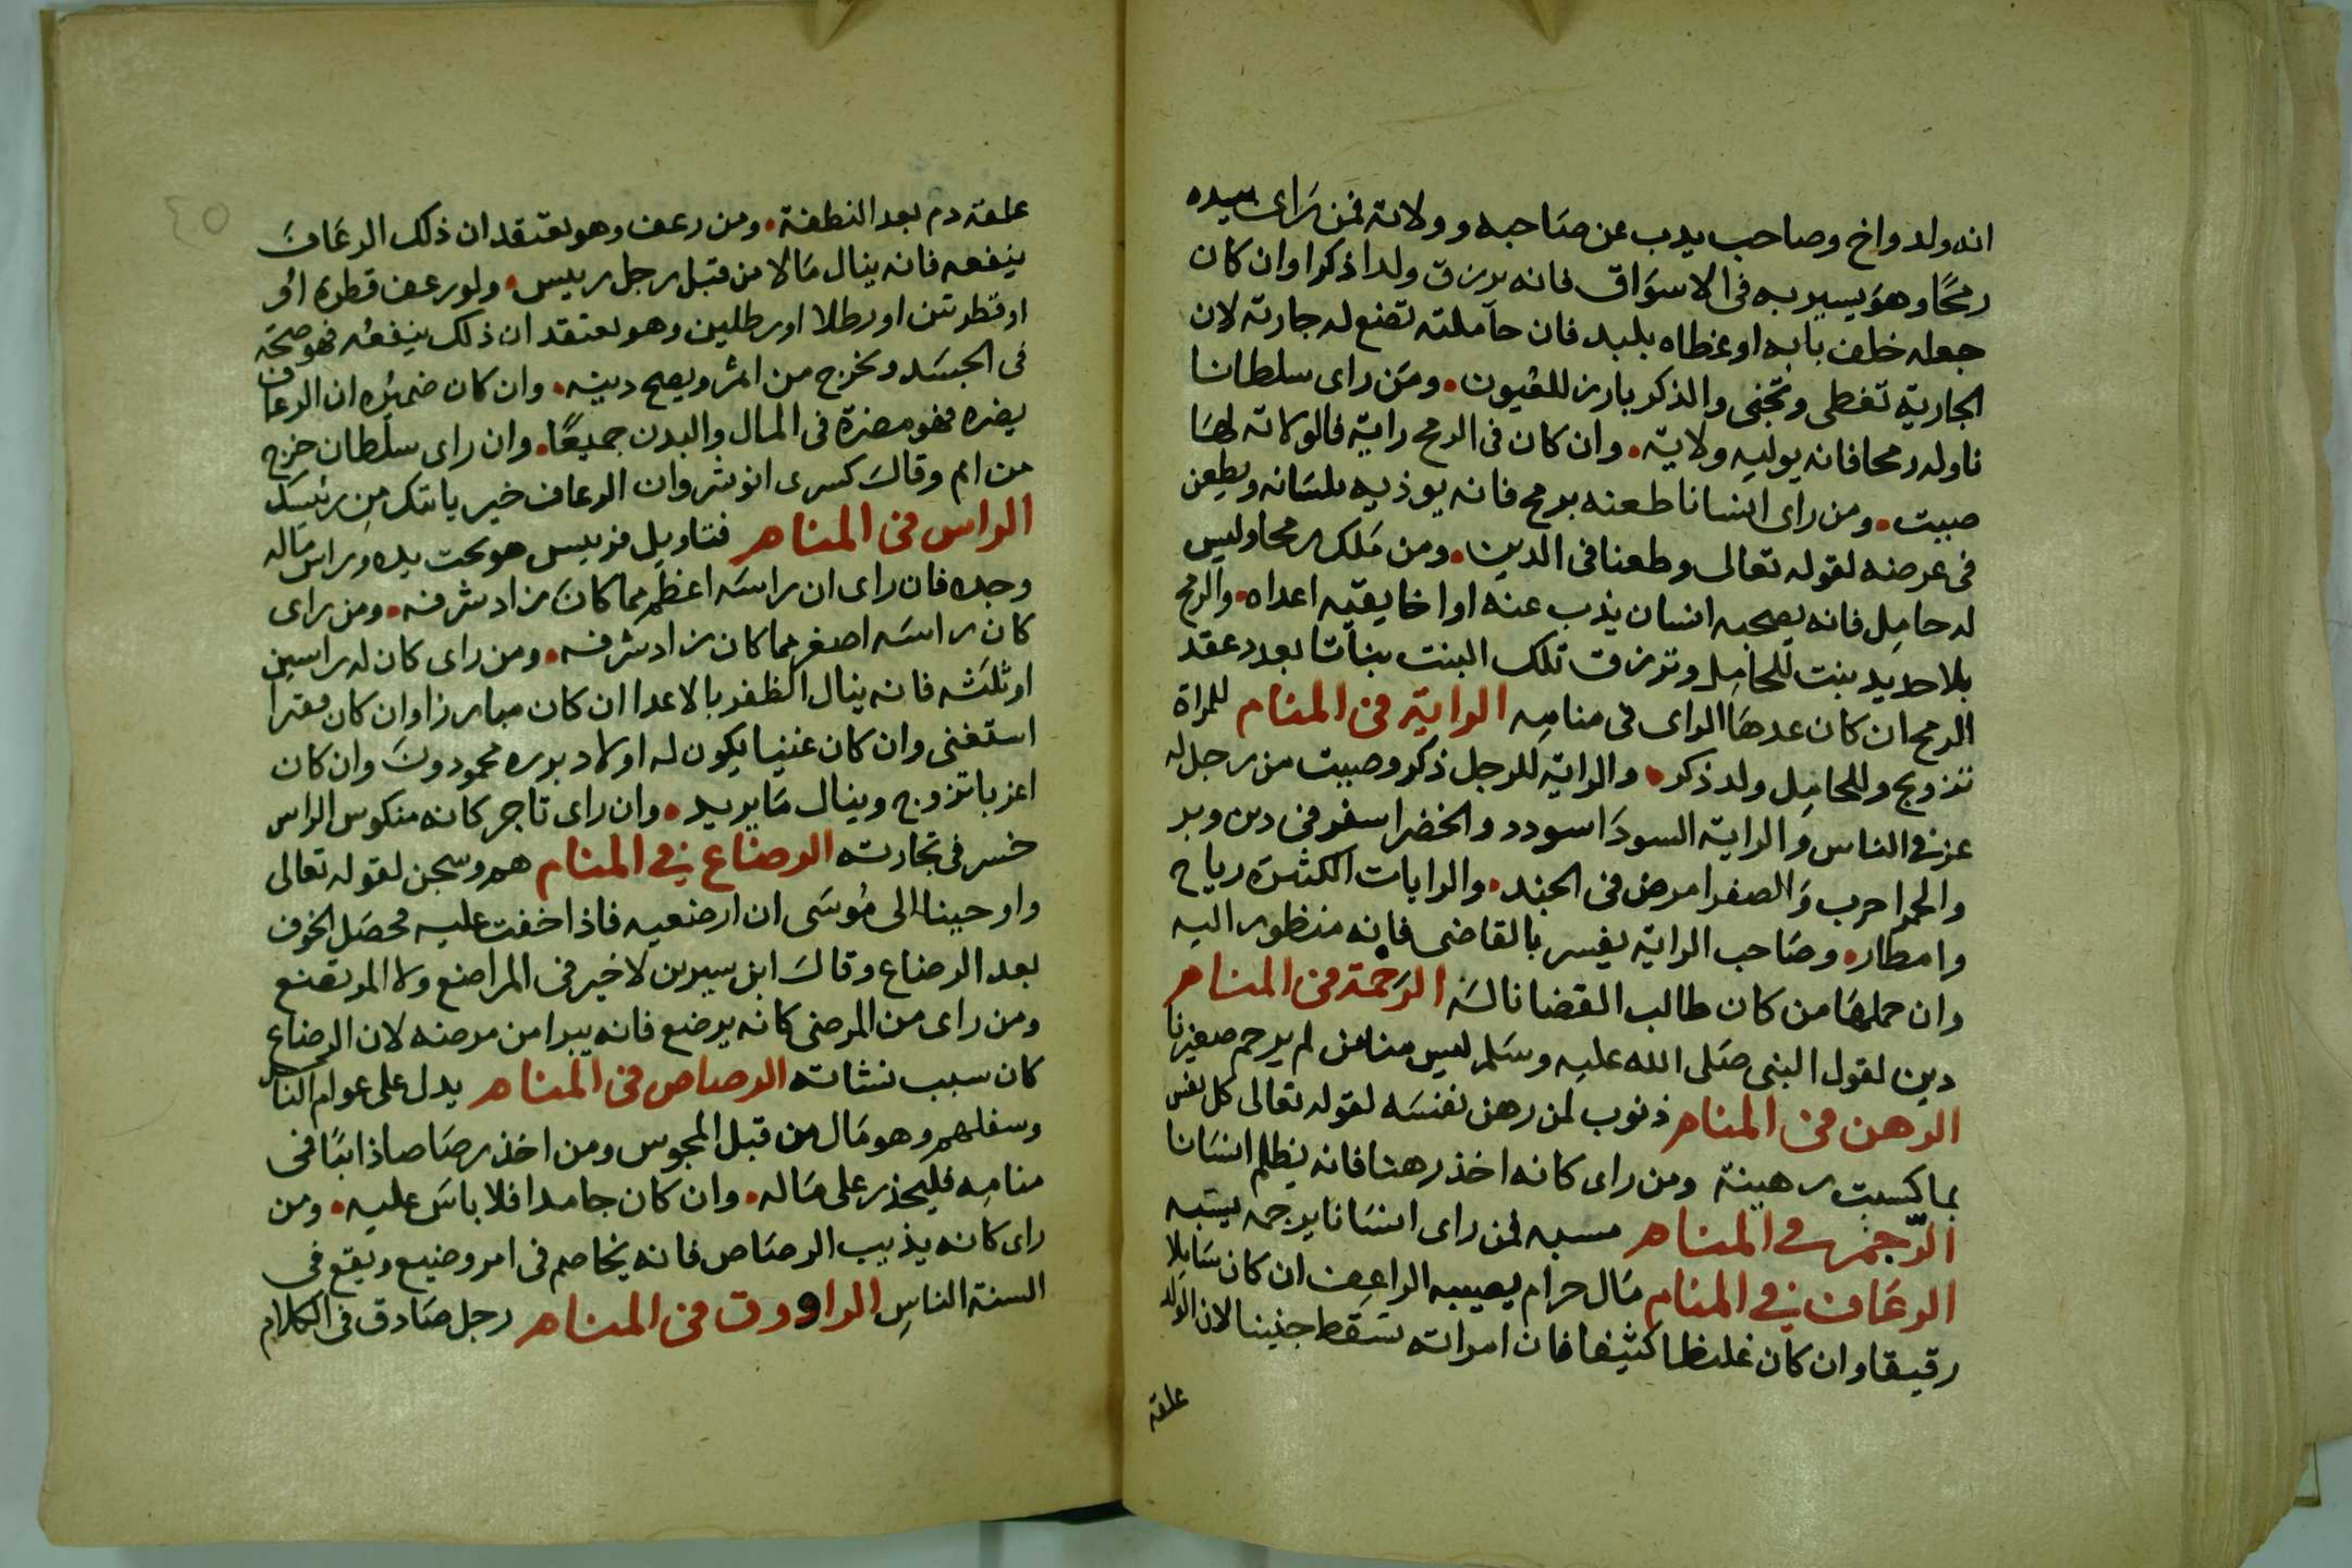 انه ولد واخ وصاحب يدب عن صاحبه وولاته فمن راى بيده
رمحا وهو يسير به فى الاسواق فانه يرزق ولدا ذكرا وان كان
جعله خلف بابه او غطاه بلبد فان حاملته تضع له جارته لان
الجارية تغطى وتخبى والذكر بارز للعيون ومن راى سلطانا
ناوله رمحا فانه يوليه ولاية وان كان فى الرمح راية فالولاته لها
صيت ومن راى انسانا طعنه برمح فانه يوذيه بلسانه ويطعن
فى عرضه لقوله تعالى وطعنا فى الدين ومن ملك رمحا وليس
له حامل فانه يصحبه انسان يذب عنه او اخا يقيه اعداه والرمح
بلا حديد بنت للحامل وترزق تلك البنت بناتا بعدد عقد
الرمح ان كان عدها الراى فى منامه الراية فى المنام للمراة
تزويج وللحامل ولد ذكر والراية للرجل ذكر وصيت من رجل له
عز فى الناس والراية السودا سودد والخضرا سفر فى دين وبر
والحمرا حرب والصفرا مرض فى الجند والرايات الكثيرة رياح
وامطار وصاحب الراية يفسر بالقاضى فانه منظور اليه
وان حملها من كان طالب القضا ناله الرحمة فى المنام
دين لقول النبى صلى الله عليه وسلم ليس منا من لم يرحم صغيرنا
الرهن فى المنام ذنوب لمن رهن نفسه لقوله تعالى كل نفس
بما كسبت رهينة ومن راى كانه اخذ رهنا فانه يظلم انسانا
الرجم فى المنام مسبه فمن راى انسانا يرجمه يسبه
الرعاف فى المنام مال حرام يصيبه الراعف ان كان سايلا
رقيقا وان كان غليظا كثيفا فان امراته تسقط جنينا لان الولد
علقة
٤٥
علقة دم بعد النطفة ومن رعف وهو يعتقد ان ذلك الرعاف
ينفعه فانه ينال مالا من قبل رجل رييس ولو رعف قطرة او
او قطرتين او رطلا او رطلين وهو يعتقد ان ذلك ينفعه فهو صحة
فى الجسد وتخرج من اثم ويصح دينه وان كان ضميره ان الرعاف
يضره فهو مضرة فى المال والبدن جميعا وان راى سلطان خرج
من اثم وقال كسرى انوشروان الرعاف خير ياتيك من رئيسك
الراس فى المنام فتاويل فرييس هو تحت يده وراس ماله
وجده فان راى ان راسه اعظم مما كان زاد شرفه ومن راى
كان راسه اصغر مما كان زاد شرفه ومن راى كان له راسين
او ثلثه فانه ينال الظفر بالاعدا ان كان مبارزا وان كان فقيرا
استغنى وان كان غنيا يكون له اولاد برره محمودون وان كان
اعزبا تزوج وينال ما يريد وان راى تاجر كانه منكوس الراس
خسر فى تجارته الرضاع فى المنام هم وسجن لقوله تعالى
واوحينا الى موسى ان ارضعيه فاذا خفت عليه فحصل الخوف
بعد الرضاع وقال ابن سيرين لا خير فى المراضع ولا المرتضع
ومن راى من المرضى كانه يرضع فانه يبرا من مرضه لان الرضاع
كان سبب نشاته الرصاص فى المنام يدل على عوام الناس
وسفلهم وهو مال من قبل المجوس ومن اخذ رصاصا ذائبا فى
منامه فليحذر على ماله وان كان جامدا فلا باس عليه ومن
راى كانه يذيب الرصاص فانه يخاصم فى امر وضيع ويقع فى
السنة الناس الراووق فى المنام رجل صادق فى الكلام